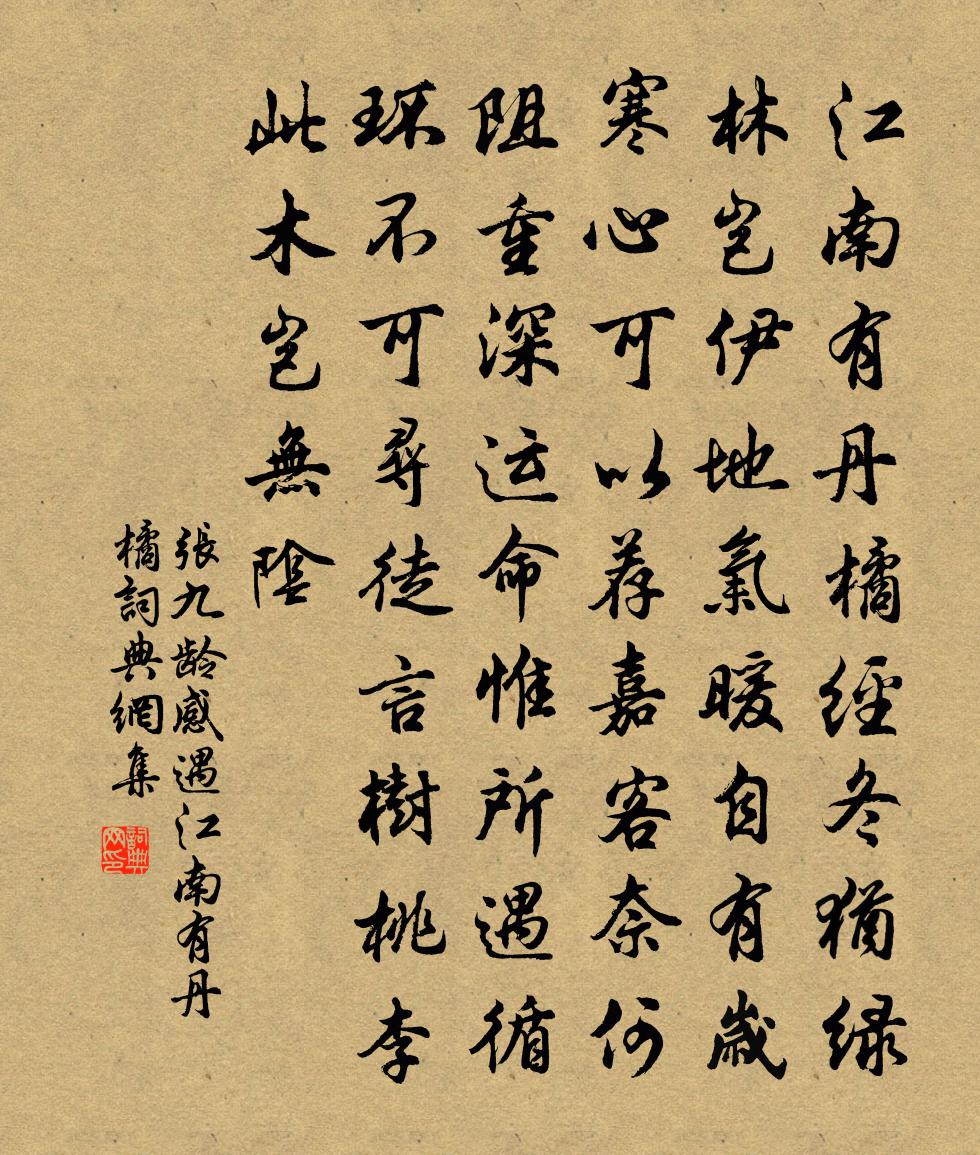 江南有丹橘經冬猶绿
林岂伊地氣暖自有歲
寒心可以荐嘉客奈何
阻重深运命惟所遇循
环不可尋徒言樹桃李
此木岂無陰
張九龄感遇江南有丹
橘詞典網集
詞典网印